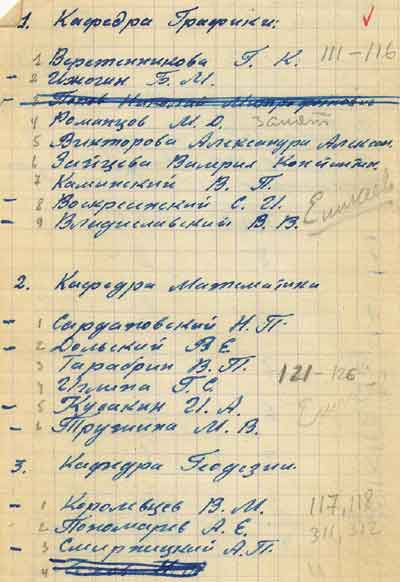 1. Кафедра Графики:
1 Веретенникова Г. К. 111–116
2 Иногин Б. М.
3 Попов Николай Митрофанович
4 Романцов М. Д. Занят
5 Викторова Александра Алексан.
6 Зайцева Валерия Константин.
7 Каминский В. П.
8 Воскресенский С. И.
9 Владиславский В. В.
2. Кафедра Математики
1 Сардановский Н. П.
2 Дольский В. Е.
3 Тарабрин В. П. 121–126
4 Иглина Г. С.
5 Кудакин И. А.
6 Трушина М. В.
3. Кафедра Геодезии.
1 Королевцев В. М. 117, 118
2 Пономарев А. Е. 311, 312
3 Смиржицкий А. П.
4